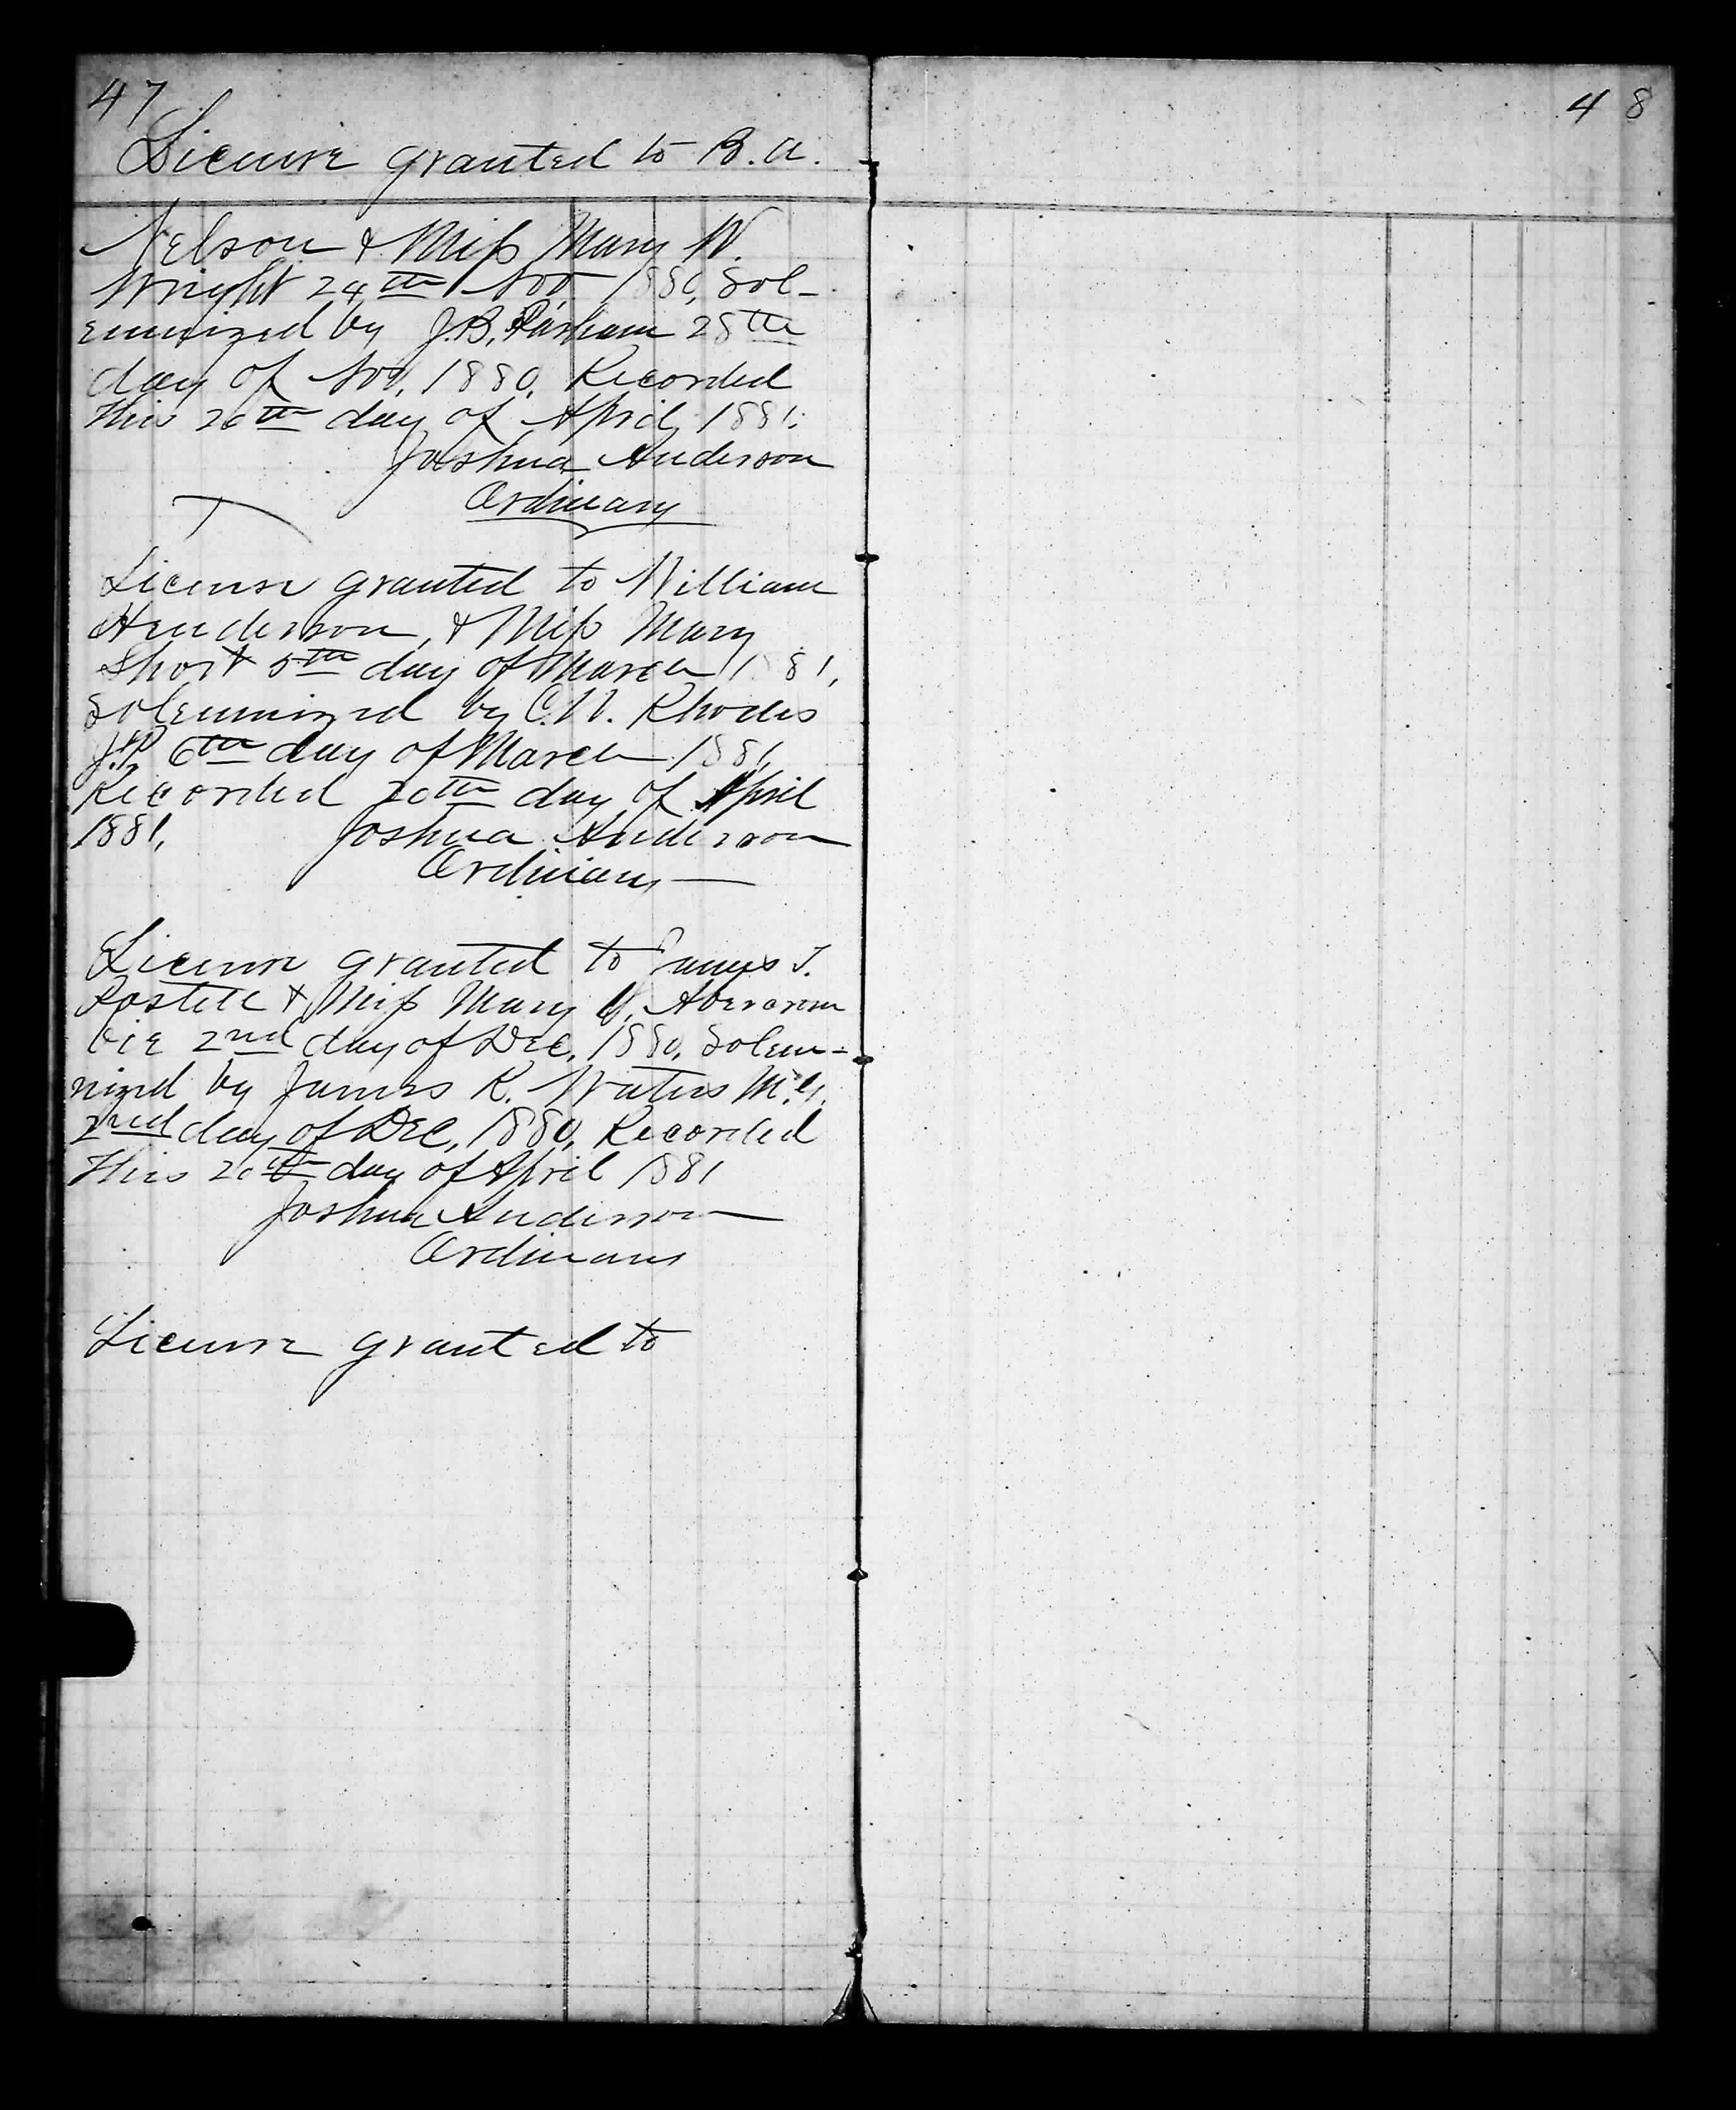 47
License granted to B. A.
Nelson & Miss Mary W.
Wright 24th Nov 1880, Sol-
emnized by J. B. Parham 28th
day of Nov, 1880, Recorded
this 20th day of April 1881.
Joshua Anderson
Ordinary
License granted to William
Henderson, & Miss Mary
Short 5th day of March 1881,
Solemnized by C. N. Rhodes
J.P. 6th day of March 1881,
Recorded 20th day of April
1881, Joshua Anderson
Ordinary
License granted to James T.
& Miss Mary Abercrom
bie 2nd day of Dec, 1880, Solem-
nized by James R. Waters M.G.
2nd day of Dec, 1880, Recorded
this 20th day of April 1881
Joshua Anderson
Ordinary
License granted to
48